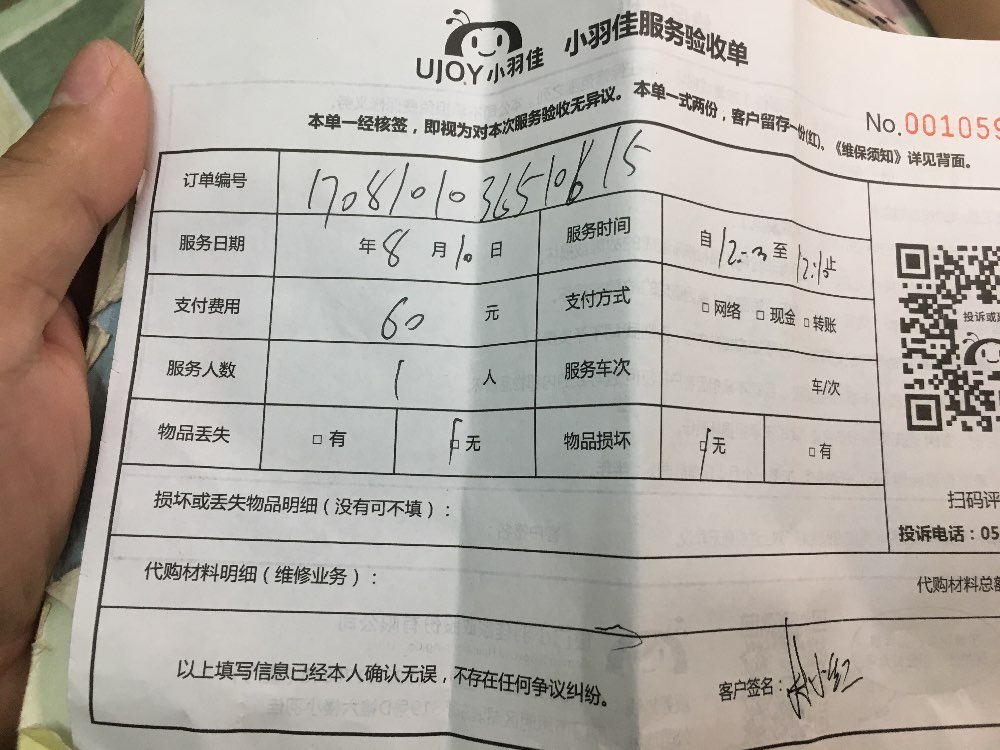 UJOY 小羽佳 小羽佳服务验收单
本单一经核签，即视为对本次服务验收无异议。本单一式两份，客户留存一份(红)。《维保须知》详见背面。
No.001059
订单编号 1708101036510615
服务日期 年 8 月 10 日 服务时间 自 至
支付费用 60 元 支付方式 □ 网络 □ 现金 □ 转账
服务人数 1 人 服务车次 车/次
物品丢失 □ 有 □ 无 物品损坏 □ 无 □ 有
投诉或
扫码评
投诉电话：05
损坏或丢失物品明细（没有可不填）：
代购材料明细（维修业务）： 代购材料总额
以上填写信息已经本人确认无误，不存在任何争议纠纷。 客户签名：